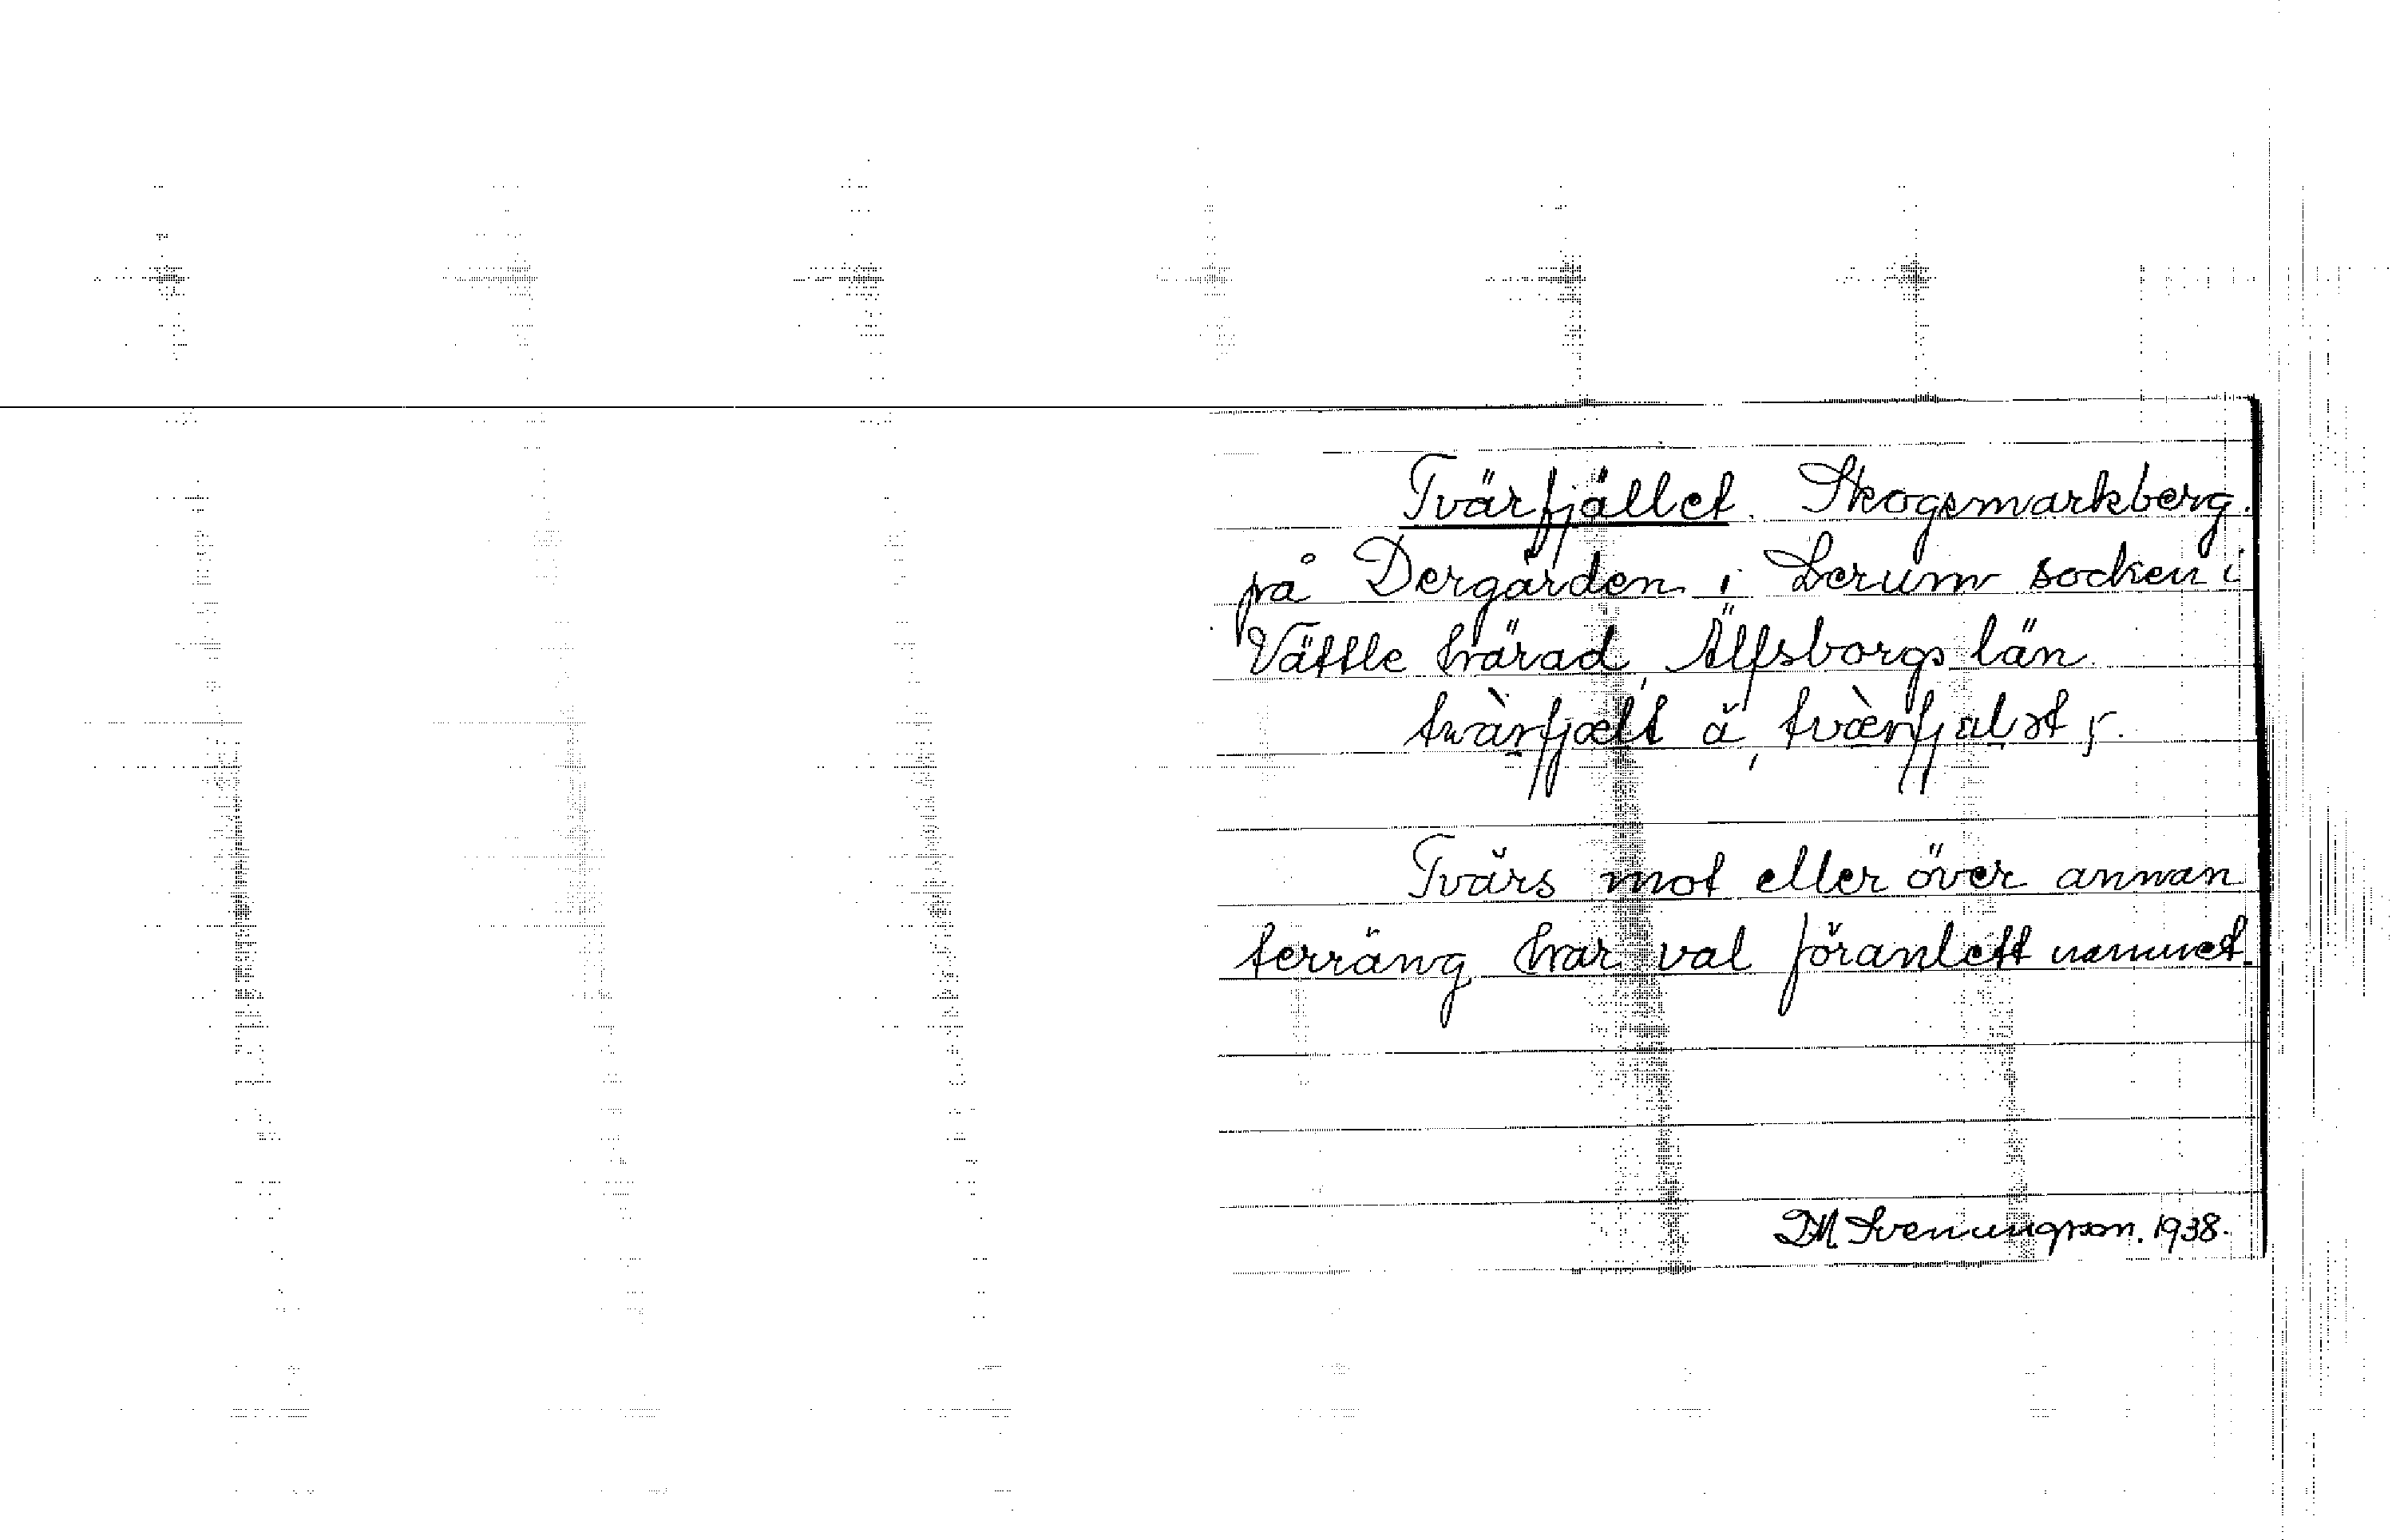 Tvärfjället. Skogsmarkberg.
på Dergården i Lerum socken i
Vättle härad, Älfsborgs län.
Tvärs mot eller över annan
terräng har val föranlett namnet.
1938.